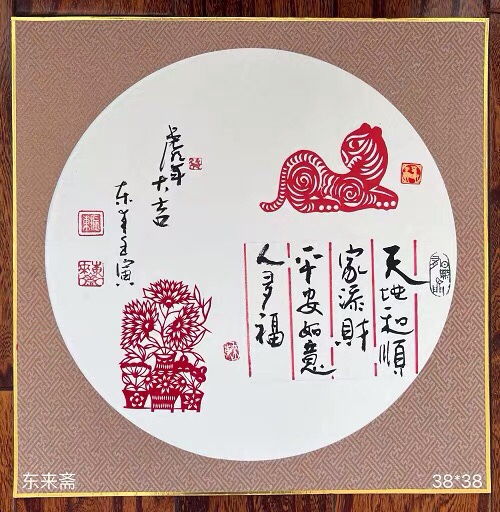 天地和順
家添財
平安如意
人多福
虎年大吉
东来壬寅
东来斋
38*38